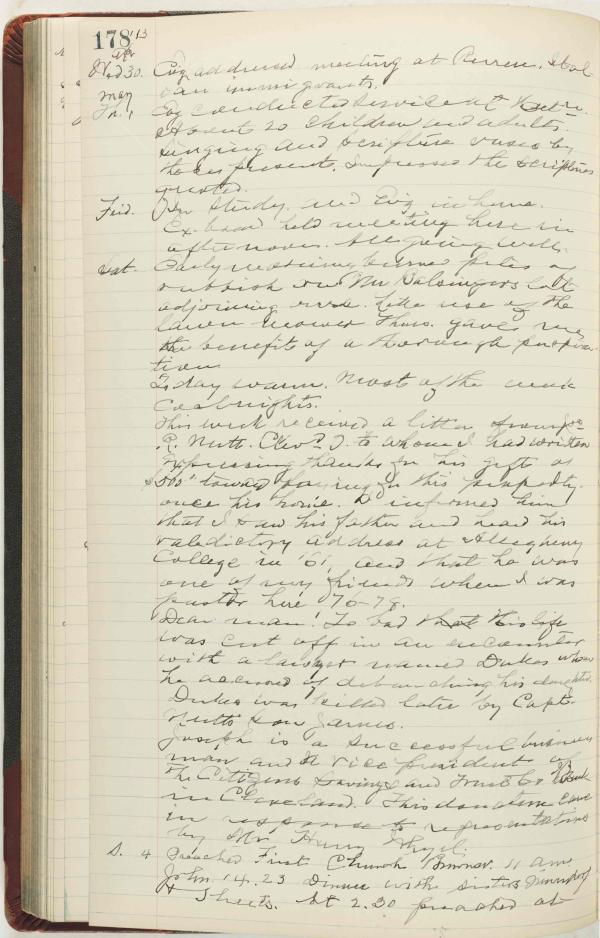 178 '13
Apr
Wed 30. Evg addressed meeting at
immigrants.
May
Th. 1 Evg conducted service at
20 children and adults.
Singing and scripture verses by
those present. Impressed the scriptures
quoted.
Frid. In Study, and Evg in home.
Ex. board held meeting here in
afternoon. All going well.
Sat. Early morning burned piles of
rubbish on Mr Balsingers lott
adjoining ours. Like use of the
lawn mower Thurs. gave me
the benefit of a thorough perspira-
tion.
Today warm. Most of the week
cool nights.
This week received a letter from Jos
R. Nutt. Clevd O. to whom I had written
expressing thanks for his gift of
$500 toward paying for this property.
once his home. I informed him
that I saw his father and heard his
valedictory address at Allegheny
College in '61, and that he was
one of my friends when I was
pastor here '76-78.
Dear man! Too bad that his life
was cut off in an encounter
with a lawyer named Dukes whom
he accused of debauching his daughter.
Dukes was killed later by Capt.
Nutts son James.
Joseph is a successful business
man and is Vice president of
The Citizens Savings and Trust Co Bank
in Cleveland. This donation came
in response to representations
by Mr. Harry Whyel.
S. 4 Preached First Church Brownsv. 11 am.
John 14.23 Dinner with sisters
+ Sheets. At 2.30 preached at